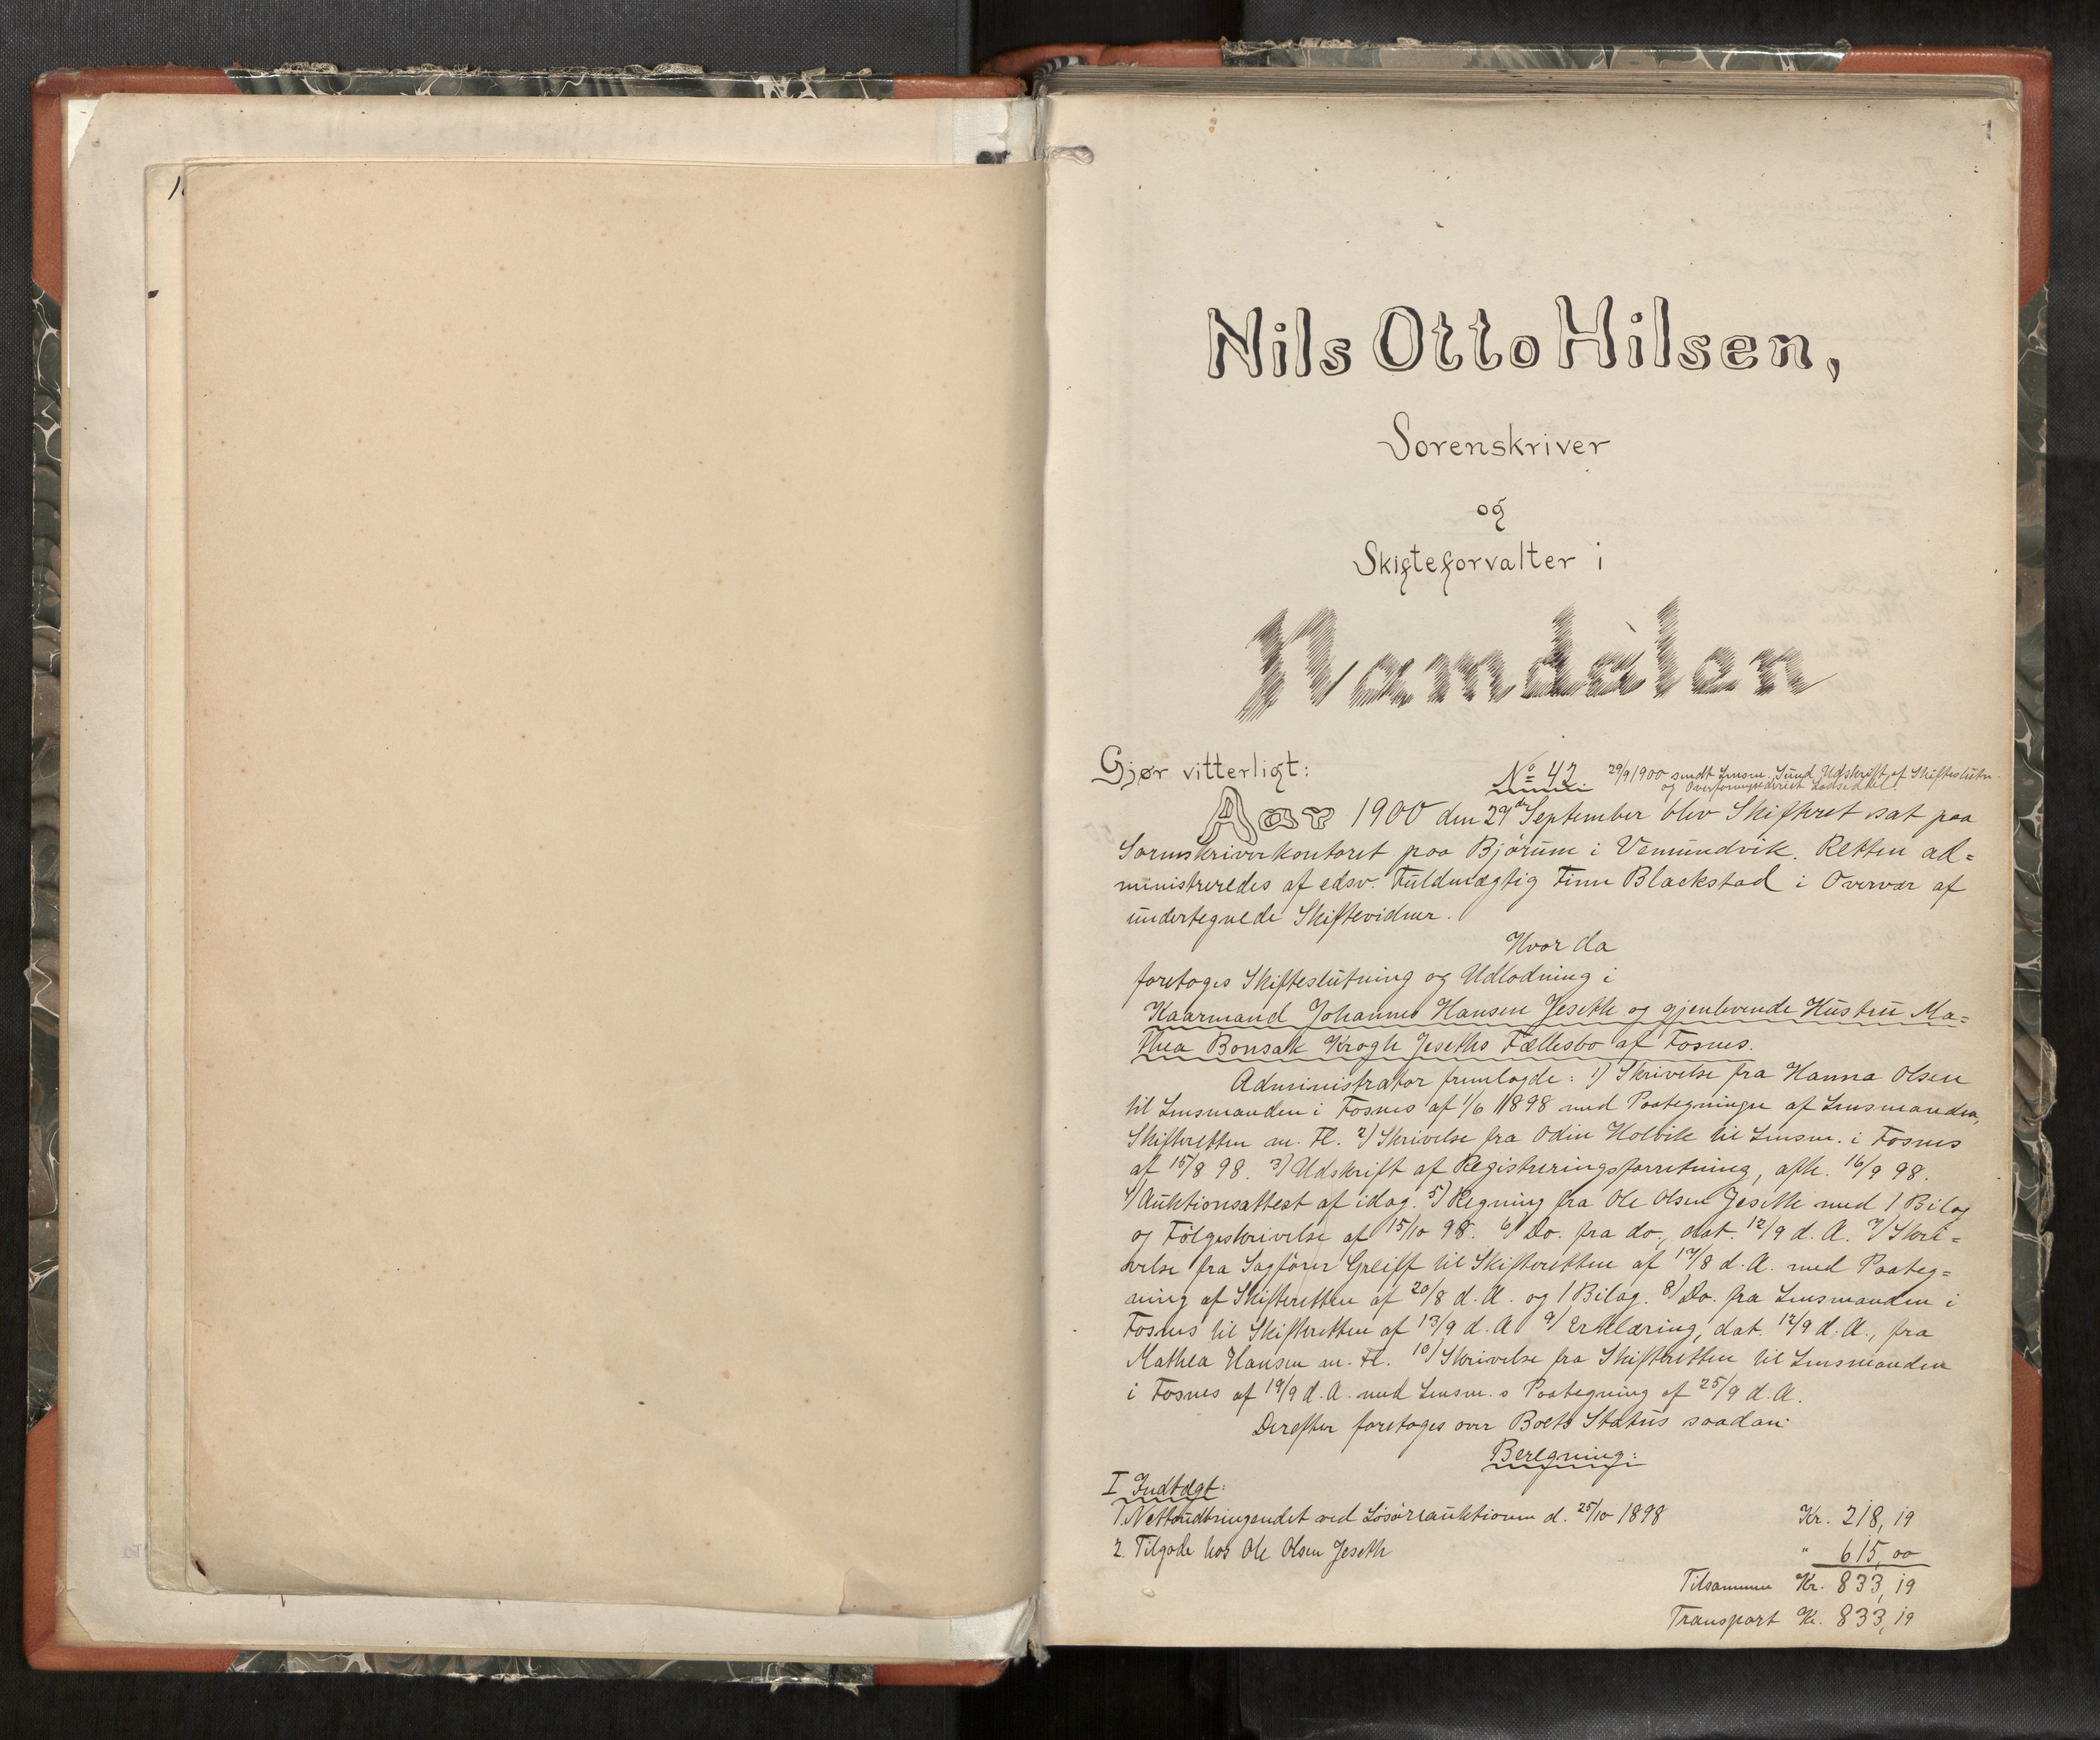 1
Nils Otto Hilsen,
Sorenskriver
og
Skifteforvalter i
Namdalen
Gjør vitterligt:
No 42. 29/9 1900 sendt Lensm. Sund Udskrift af Skifteslutn.
og Overformynderiet Lodseddel.
Aar 1900 den 29de September blev Skifteret sat paa
Sorenskriverkontoret paa Bjørum i Vemundvik. Retten ad=
ministreredes af edsv. Fuldmægtig Finn Blackstad i Overvær af
undertegnede Skiftevidner.
Hvor da
foretoges Skifteslutning og Udlodning i
Kaarmand Johannes Hansen Jeseth og gjenlevende Hustru Ma=
thea Bonsak Krogh Jeseths Fællesbo af Fosnes.
Administrator fremlagde: 1) Skrivelse fra Hanna Olsen
til Lensmanden i Fosnes af 1/6 1898 med Paategninger af Lensmanden,
Skifteretten m. Fl. 2) Skrivelse fra Odin Holvik til Lensm. i Fosnes
af 15/8 98. 3) Udskrift af Registreringsforretning, afh. 16/9 98.
4) Auktionsattest af idag. 5) Regning fra Ole Olsen Jeseth med 1 Bilag
og Følgeskrivelse af 15/10 98. 6) Do. fra do., dat. 12/9 d. A. 7) Skri=
velse fra Sagfører Greiff til Skifteretten af 17/8 d. A. med Paateg=
ning af Skifteretten af 20/8 d. A. og 1 Bilag. 8) Do. fra Lensmanden i
Fosnes til Skifteretten af 13/9 d. A 9) Erklæring, dat. 12/9 d. A., fra
Mathea Hansen m. Fl. 10) Skrivelse fra Skifteretten til Lensmanden
i Fosnes af 19/9 d. A. med Lensm.s Paategning af 25/9 d. A.
Derefter foretoges over Boets Status saadan
Beregning:
I Indtægt:
1. Nettoudbringendet ved Løsøreauktionen d. 25/10 1898 Kr. 218,19
2. Tilgode hos Ole Olsen Jeseth " 615,00
Tilsammen Kr. 833,19
Transport Kr. 833,19